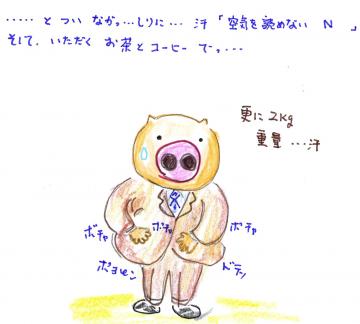 ・・・・・ と つい なが・・・しりに・・・ 汗 「空気を読めない N 」
そして、いただく お茶と コーヒー でっ・・・
更に 2Kg
重量 ・・・汗
ボチャ ボチャ ボチャ
ボヨヨン ドテッ